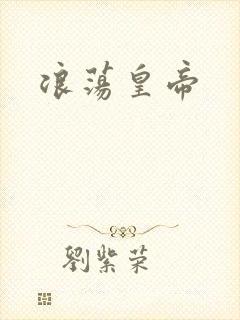 浪蕩皇帝
劉紫荣